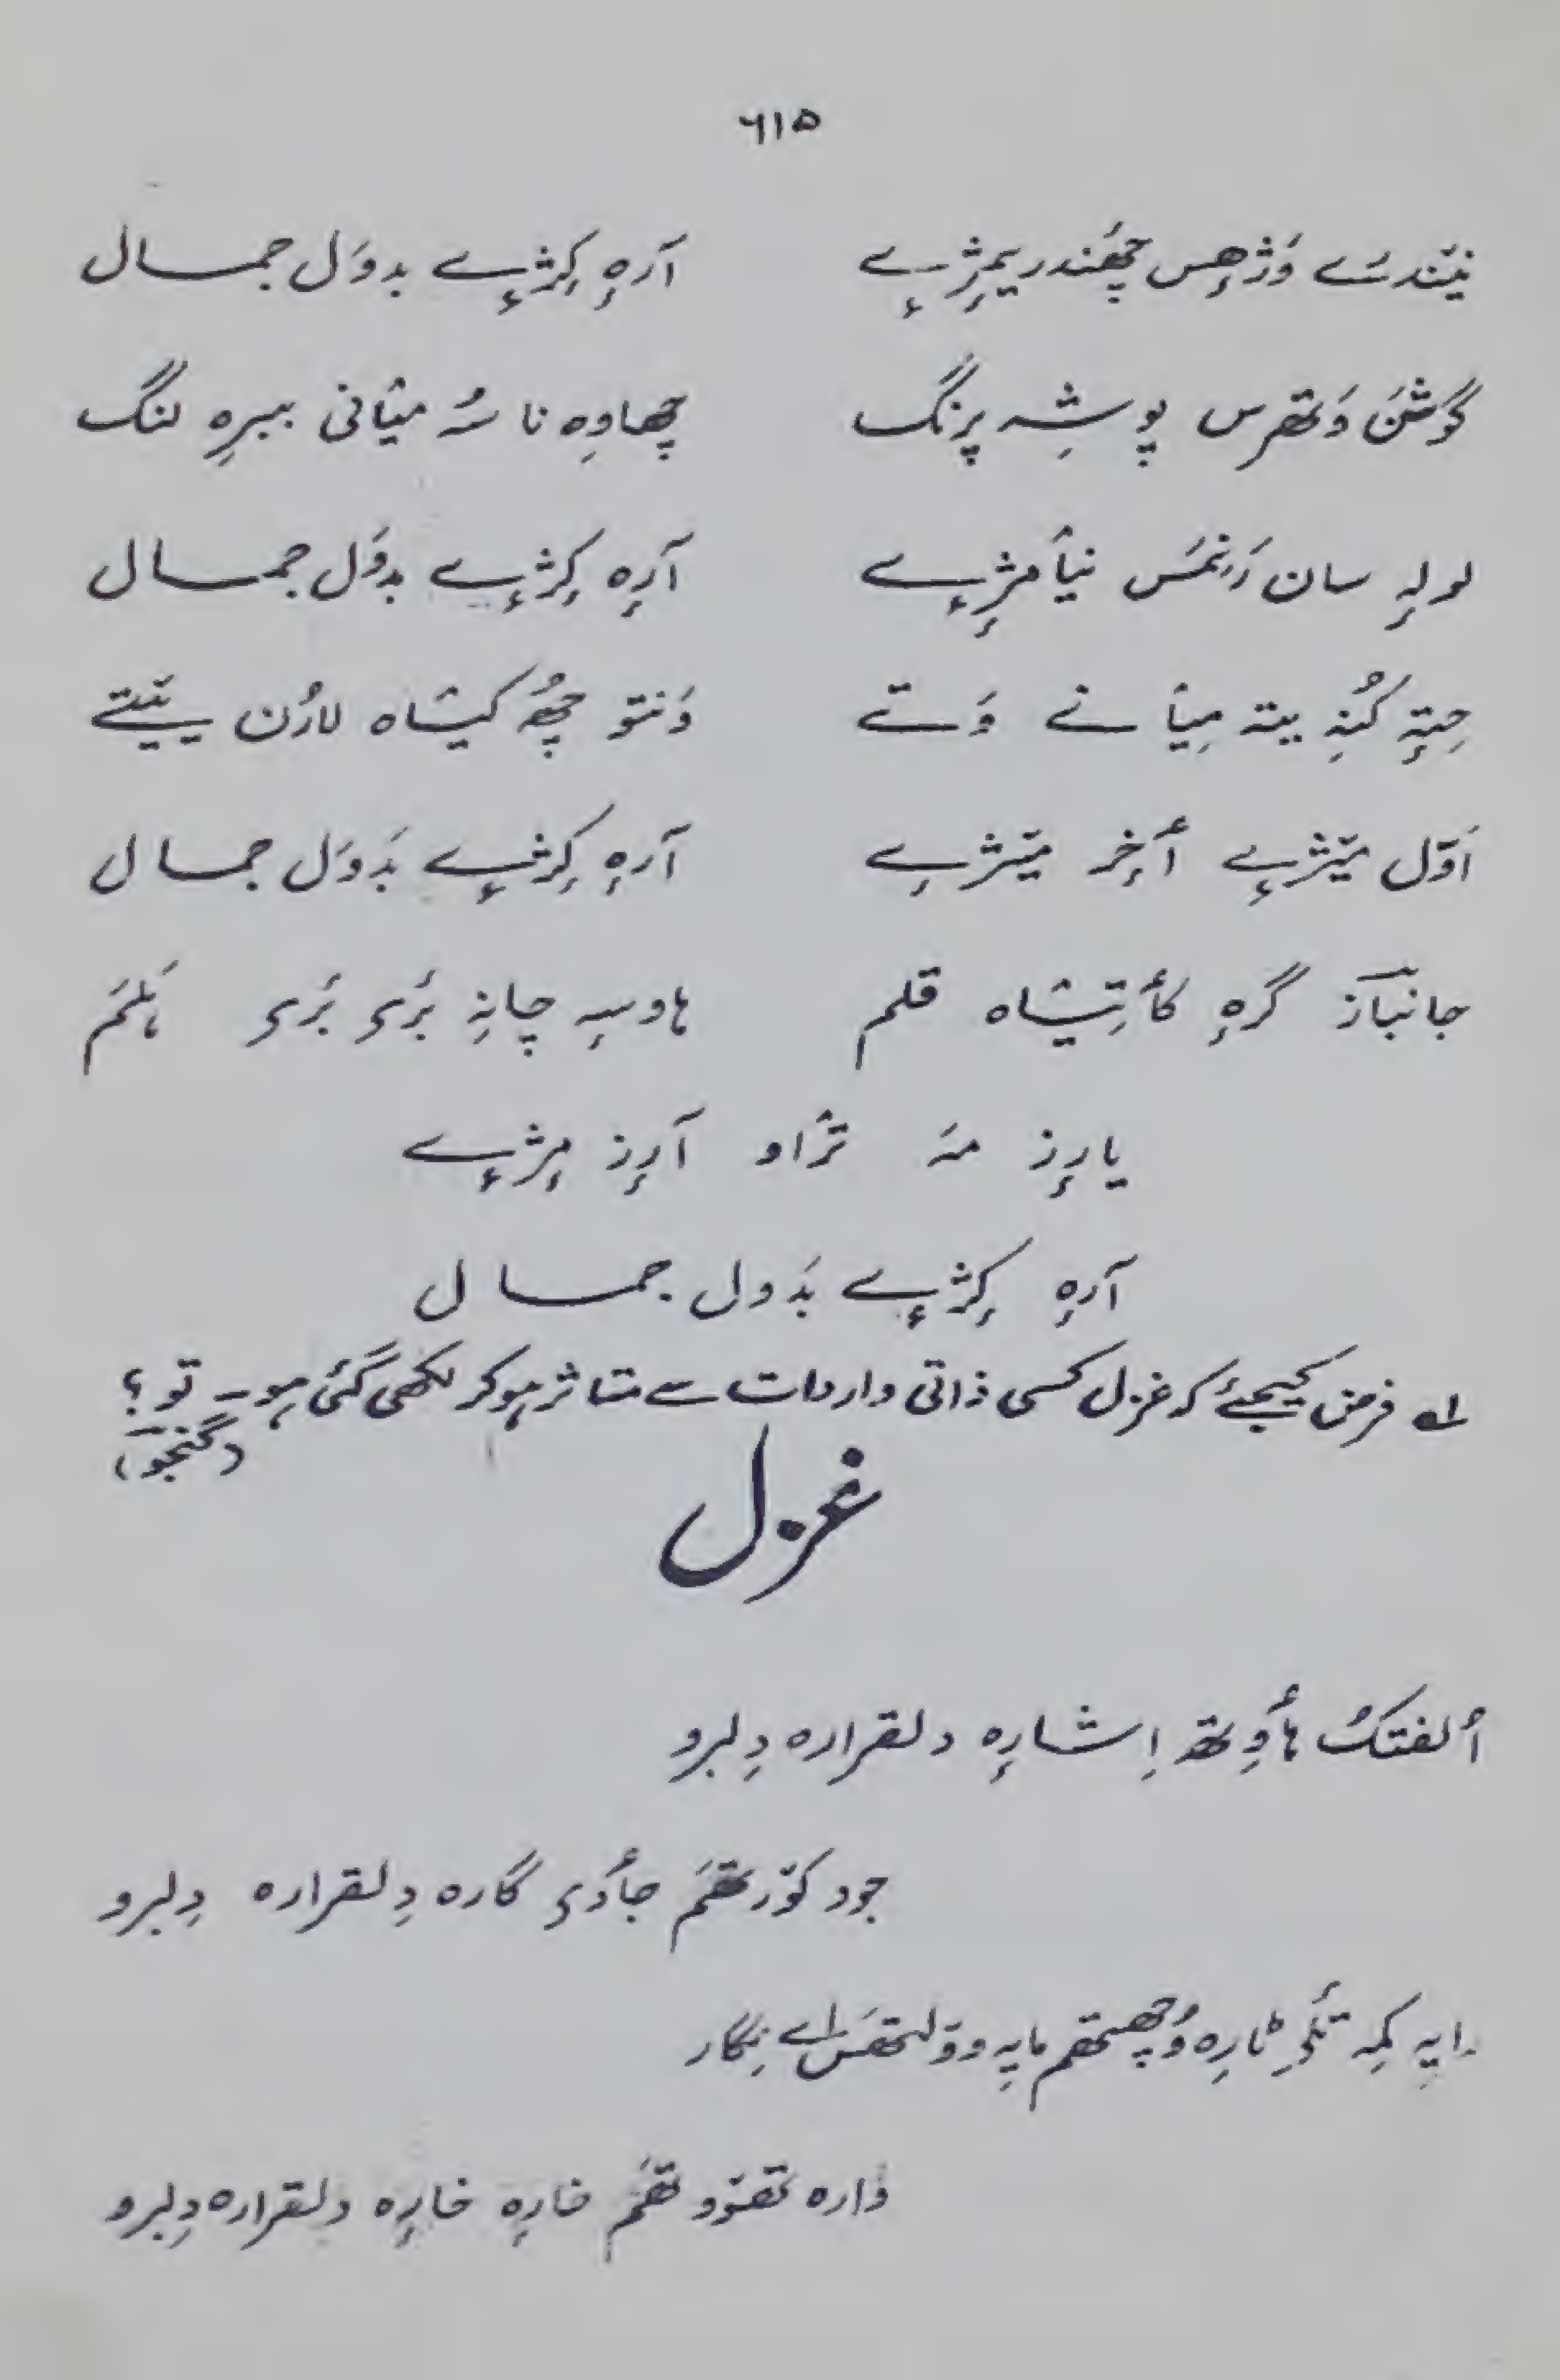 ۶۱۵
نیٚندرے وَژھِس چھَندریمِژٕے آرٕہ کِژٕے بدوَل جمال
گوشَن وَتھرس پوشہِ پرنگ چھاوِہ نا سُہ میٲنی ببرِہ لنگ
لولہٕ سان رٔنمَس نیٲمژٕے آرٕہ کِژٕے بدوَل جمال
حِتہٕ کُنہِ یتہ میٲنے وَتے وَنتو چھُ کیشاہ لارُن یٔتے
اَوّل میٚژٕے أخِر میٚژے آرٕہ کِژٕے بَدوَل جمال
جانبآز گرٕہ کأتیشاہ قلم ہاوسہِ چانہِ بَرۍ بَرۍ ہَلَم
یارٕز مہٕ ترٛاو آرٕز مِژٕے
آرٕہ کِژٕے بَدول جمال
لہ فرض کیجیئے کہ غزل کسی ذاتی واردات سے متاثر ہوکر لکھی گئی ہو۔ تو؟
(گنجو)
غزل
اُلفتکُ ہأوِتھ اِشارٕہ دلقرارہ دِلبرو
جود کوٚرتھَم جأدۍ گارہ دِلقرارہ دِلبرو
رایہِ کمہِ تَلۍ ٹارِہ وُچھتھم مایہِ وولتھَس اے نِگار
ژارہ تھوٚوتھَم خارٕہ خارٕہ دلقرارہ دِلبرو